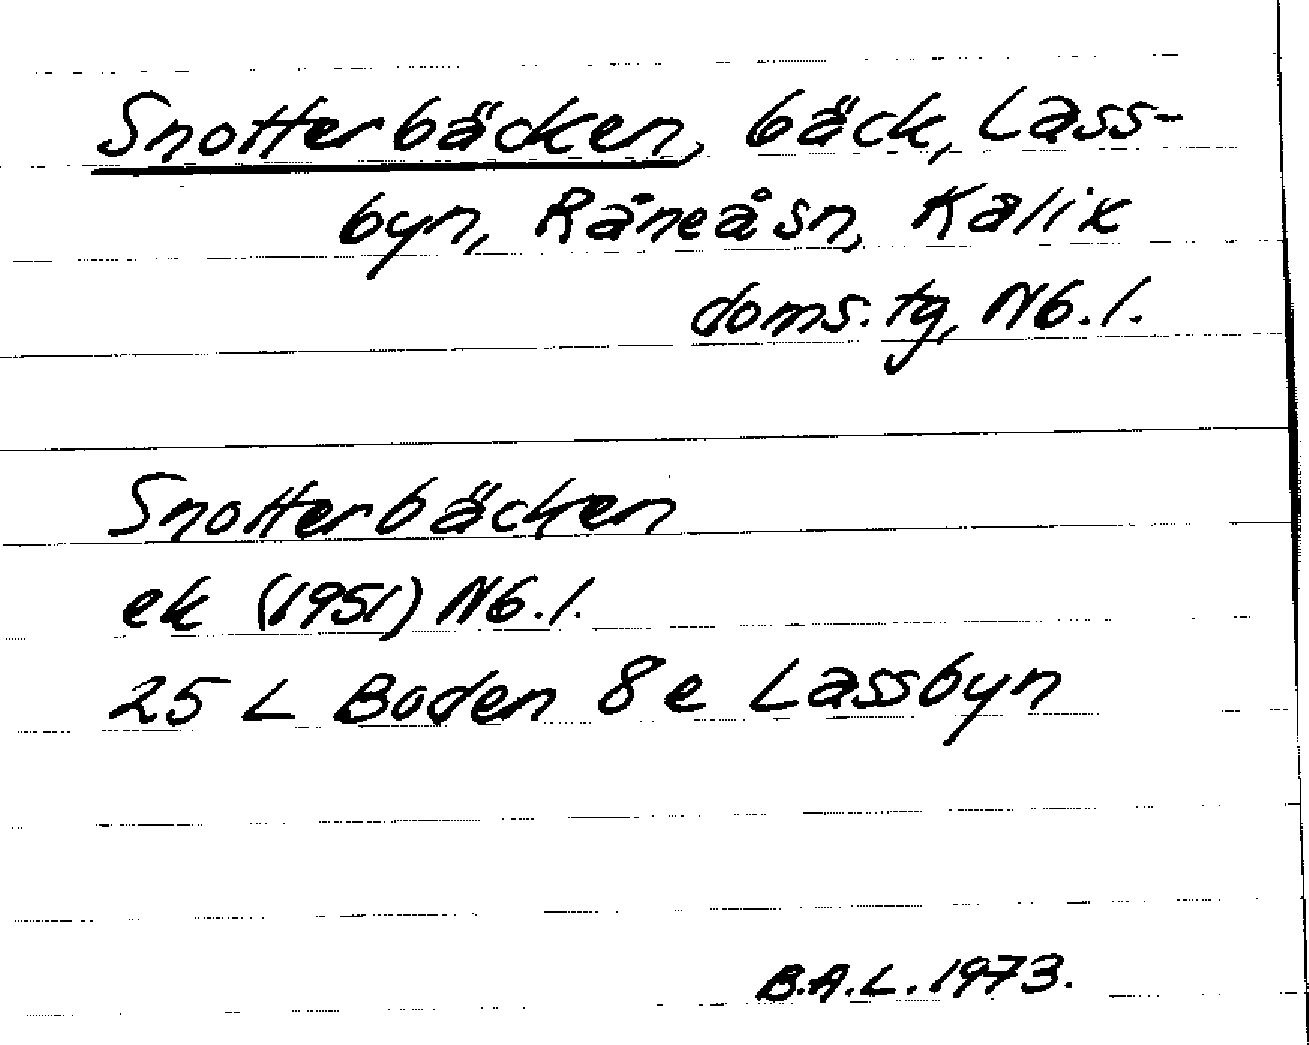 Snotterbäcken, bäck, Lass-
byn, Råneå sn, Kalix
doms. tg, Nb. l.
Snotterbäcken
ek (1951) Nb. l.
25 L Boden 8 e Lassbyn
B.A.L. 1973.